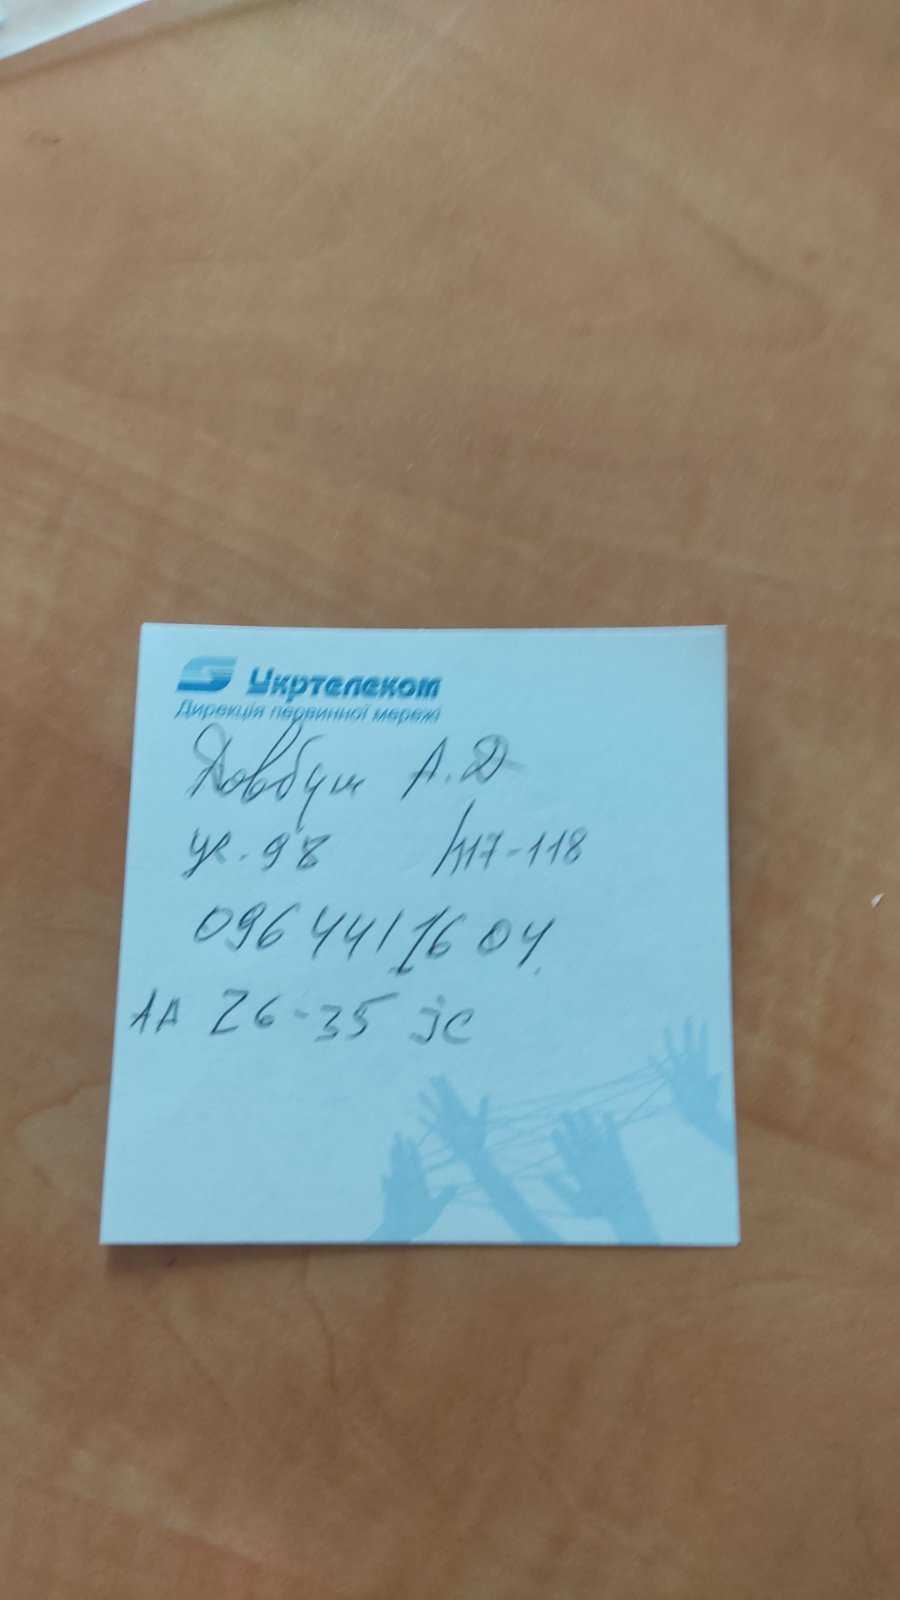 Укртелеком
Дирекція первинної мережі
Довбуш А.Д
ук. 98 117-118
096 441 16 04
АА 26-35 ІС